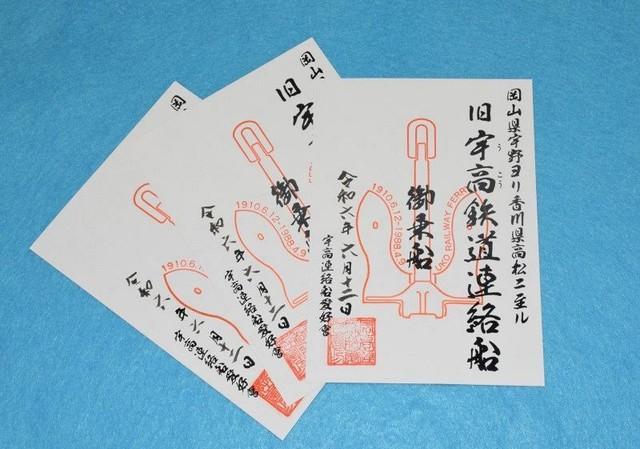 岡山県宇野ヨリ香川県高松ニ至ル
旧宇高鉄道連絡船
うこう
御乗船
1910.6.12-1988.4.9
UKO RAILWAY FERRY
令和六年六月十二日
宇高連絡船愛好会
岡山
旧宇
御乗船
1910.6.12-1988.4.9
令和六年六月十二日
宇高連絡船愛好会
岡
1910.6.1
令和六年六月十二日
宇高連絡船愛好会